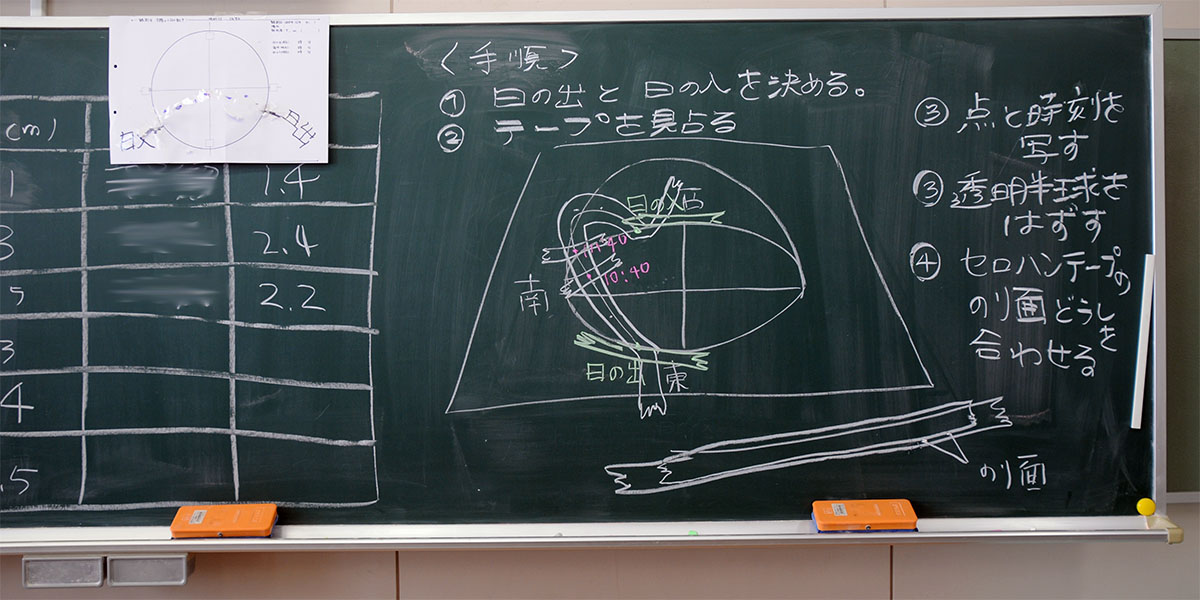 cm)
1
1.4
3
2.4
5
2.2
3
4
.5
日入
日出
〈手順〉
① 日の出と日の入を決める。
② テープを見占る
日の入
占
11:40
10:40
南
日の出
東
のり面
③ 点と時刻を
写す
③ 透明半球を
はずす
④ セロハンテープの
のり面どうしを
合わせる